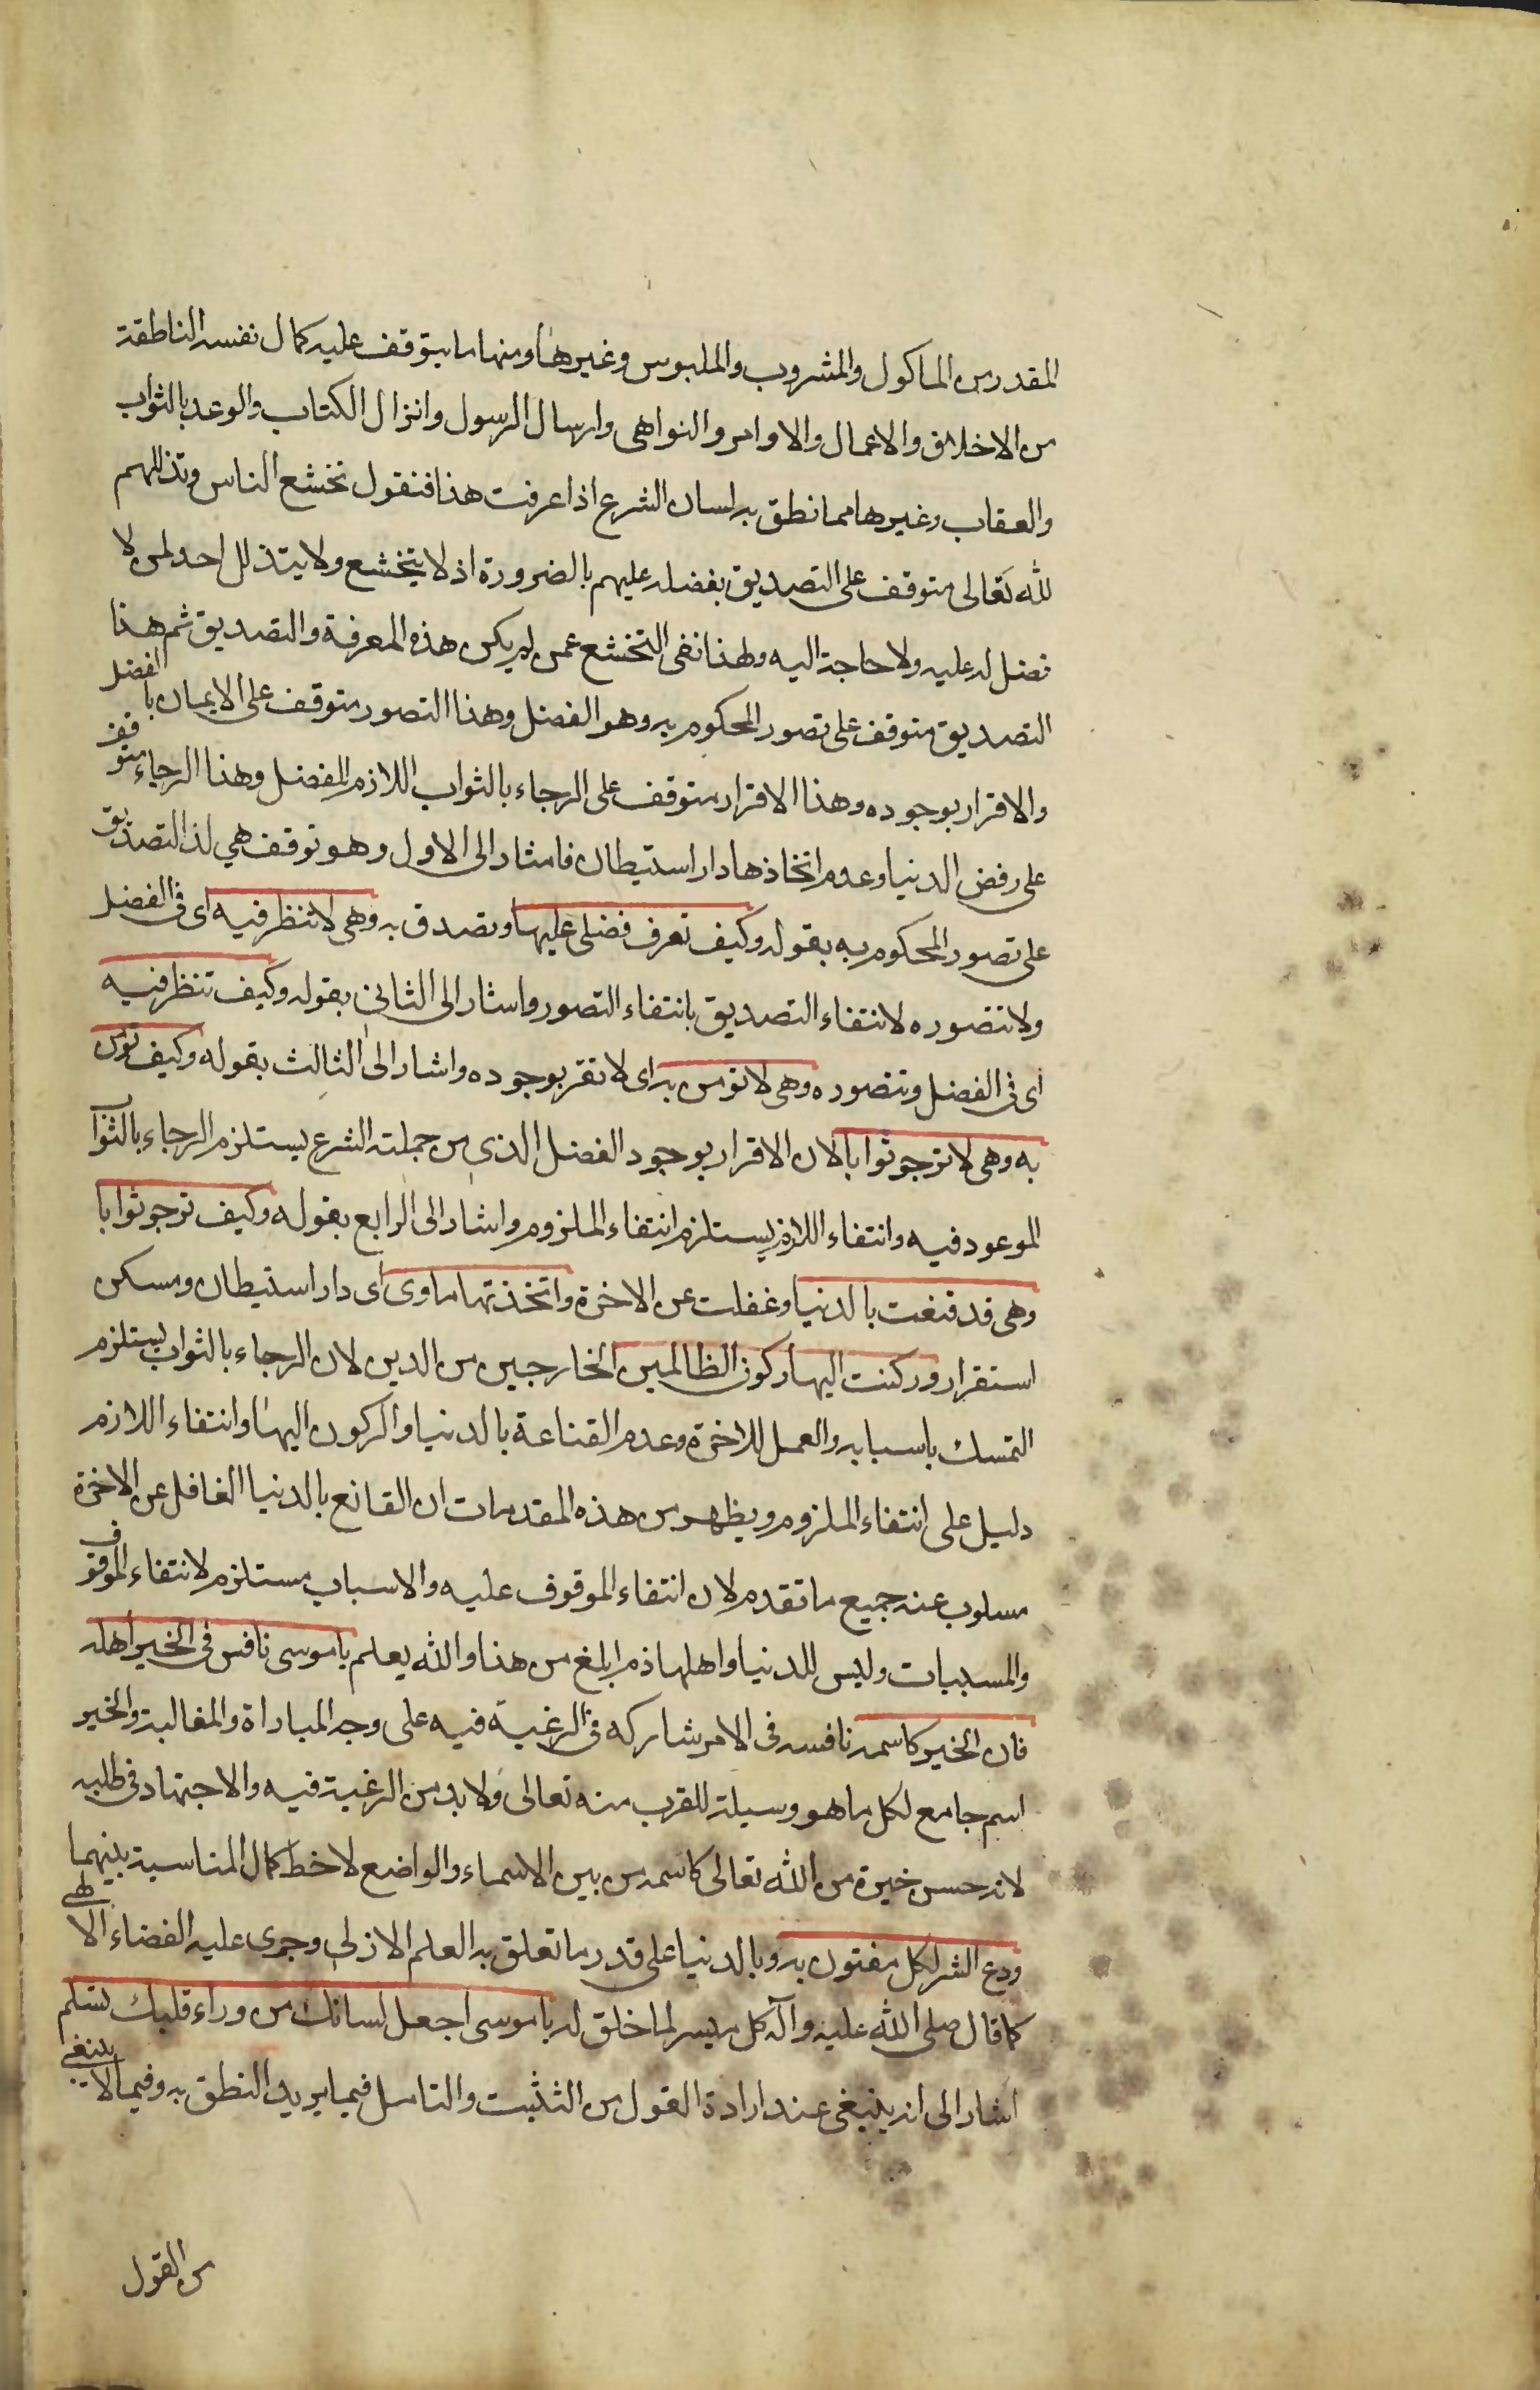 المقدر من الماكول والمشروب والملبوس وغيرها ومنها ما يتوقف عليه كمال نفسه الناطقة
من الاخلاق والاعمال والاوامر والنواهى وارسال الرسول وانزال الكتاب والوعد بالثواب
والعقاب وغيرها مما نطق به لسان الشرع اذا عرفت هذا فنقول تخشع الناس وتذللهم
لله تعالى متوقف على التصديق بفضله عليهم بالضرورة اذ لا يتخشع ولا يتذلل احد لمن لا
فضل له عليه ولا حاجة اليه ولهذا نفى التخشع عمن لم يكن هذه المعرفة والتصديق ثم هذا
التصديق متوقف على تصور المحكوم به وهو الفضل وهذا التصور متوقف على الايمان بالفضل
والاقرار بوجوده وهذا الاقرار متوقف على الرجاء بالثواب اللازم للفضل وهذا الرجاء متوقف
على رفض الدنيا وعدم اتخاذها دار استيطان فاشار الى الاول وهو توقف هي لذا التصديق
على تصور المحكوم به بقوله وكيف تعرف فضلى عليها وتصدق به وهى لا تنظر فيه اى فى الفضل
ولا تتصوره لانتفاء التصديق بانتفاء التصور واشار الى الثانى بقوله وكيف تنظر فيه
اى فى الفضل وتتصوره وهى لا تومن به اى لا تقر بوجوده واشار الى الثالث بقوله وكيف تومن
به وهى لا ترجو ثوابا لان الاقرار بوجود الفضل الذى من جملته الشرع يستلزم الرجاء بالثواب
الموعود فيه وانتفاء اللازم يستلزم انتفاء الملزوم واشار الى الرابع بقوله وكيف ترجو ثوابا
وهى قد قنعت بالدنيا وغفلت عن الاخرة واتخذتها ماوى اى دار استيطان ومسكن
استقرار وركنت اليها ركون الظالمين الخارجين من الدين لان الرجاء بالثواب يستلزم
التمسك باسبابه والعمل للاخرة وعدم القناعة بالدنيا والركون اليها وانتفاء اللازم
دليل على انتفاء الملزوم ويظهر من هذه المقدمات ان القانع بالدنيا الغافل عن الاخرة
مسلوب عنه جميع ما تقدم لان انتفاء الموقوف عليه والاسباب مستلزم لانتفاء الموقوف
والمسببات وليس للدنيا واهلها ذم ابلغ من هذا والله يعلم يا موسى نافس فى الخير اهله
فان الخير كاسمه نافسه فى الامر شاركه فى الرغبة فيه على وجه المباراة والمغالبة والخير
اسم جامع لكل ما هو وسيلة للقرب منه تعالى ولا بد من الرغبة فيه والاجتهاد فى طلبه
لانه حسن خيرة من الله تعالى كاسمه من بين الاسماء والواضع لاخط كمال المناسبة بينهما
ودع الشر لكل مفتون به وبالدنيا على قدر ما تعلق به العلم الازلى وجرى عليه القضاء الالهى
كما قال صلى الله عليه وآله كل ميسر لما خلق له يا موسى اجعل لسانك من وراء قلبك تسلم
اشار الى انه ينبغى عند ارادة القول من التثبت والتامل فيما يريد النطق به وفيما لا ينبغى
من القول